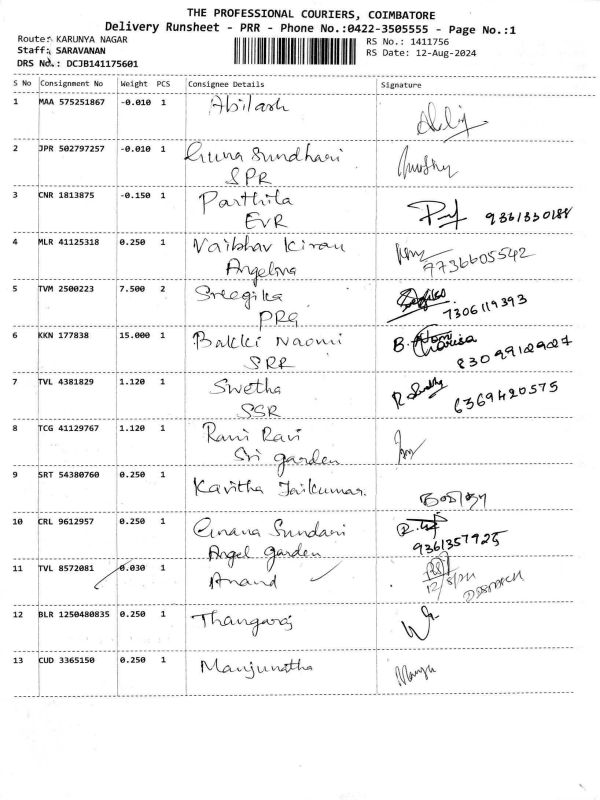 THE PROFESSIONAL COURIERS, COIMBATORE
Delivery Runsheet - PRR - Phone No.:0422-3505555 - Page No.:1
Route: KARUNYA NAGAR
RS No.: 1411756
Staff: SARAVANAN
RS Date: 12-Aug-2024
DRS No.: DCJB141175601
S No Consignment No Weight PCS Consignee Details Signature
1 MAA 575251867 -0.010 1 Abilash
2 JPR 502797257 -0.010 1 Guna Sundhari
SPR
3 CNR 1813875 -0.150 1 Parthila
EVR 9361330188
4 MLR 41125318 0.250 1 Vaibhav Kiran
Angelina 9736605542
5 TVM 2500223 7.500 2 Sreegika
PRG 7306119393
6 KKN 177838 15.000 1 Bakki Naomi B.
SRR
7 TVL 4381829 1.120 1 Swetha
SSR 6369420575
8 TCG 41129767 1.120 1 Rani Ravi
Sri garden
9 SRT 54380760 0.250 1
Kavitha Jaikumar.
10 CRL 9612957 0.250 1 Gnana Sundari
Angel garden 9361357925
11 TVL 8572081 0.030 1 Anand
12/8/24
12 BLR 1250480835 0.250 1 Thangaraj
13 CUD 3365150 0.250 1 Manjunatha